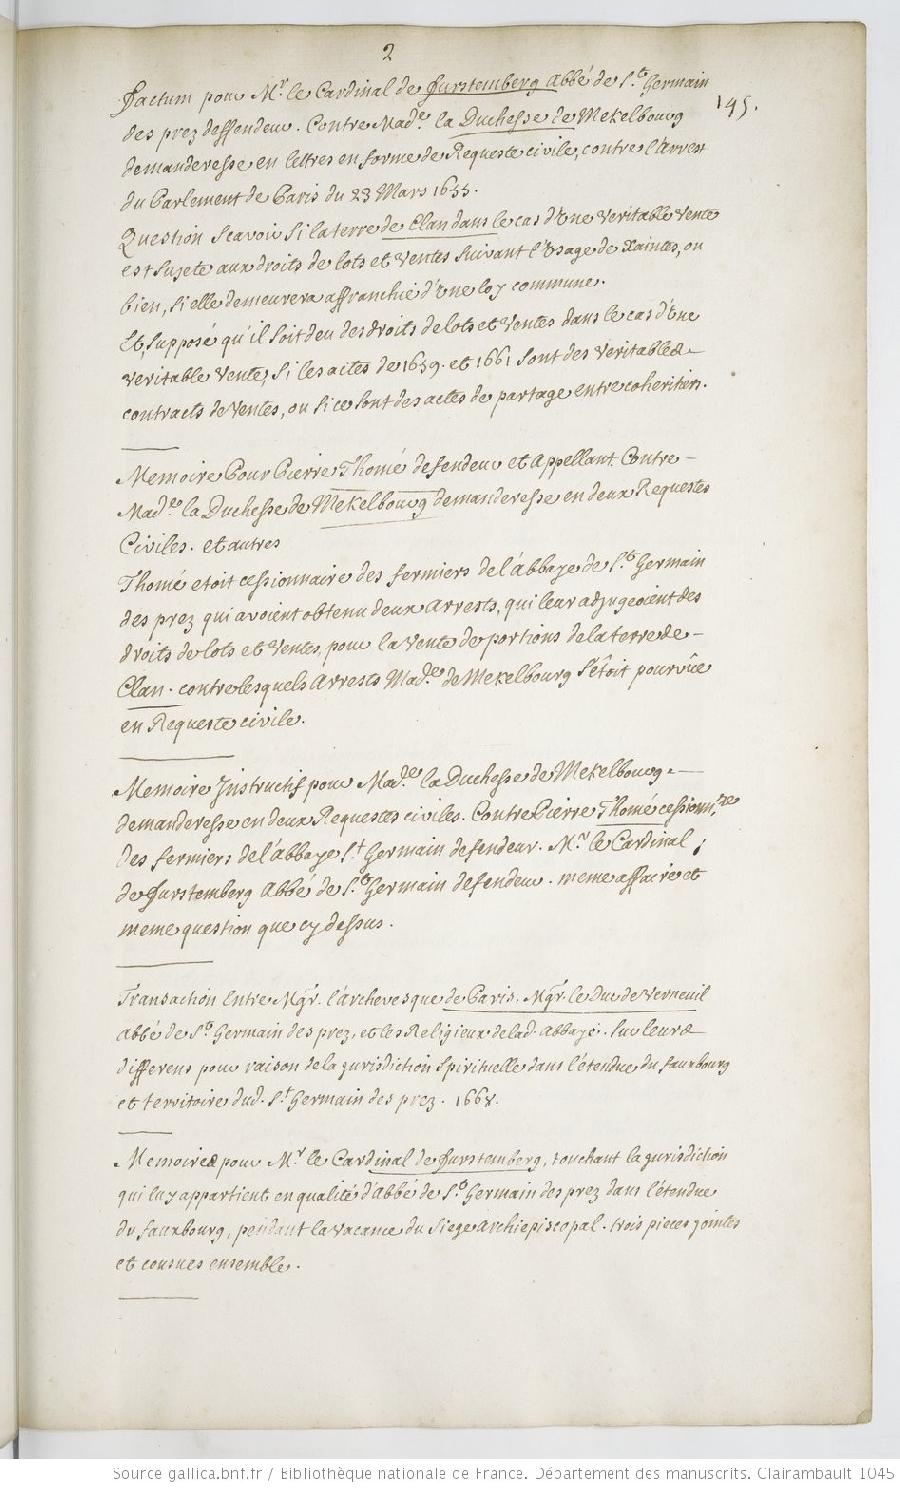 2
195.
Factum pour Mr. le Cardinal de Furstemberg Abbé de St. Germain
des prez deffendeur. Contre Made. la Duchesse de Mekelbourg
demanderesse en lettres en forme de Requeste civile, contre l'arrest
du Parlement de Paris du 23 Mars 1655.
Question Scavoir Si la terre de Clan dans le cas d'Une Veritable Vente
est Sujete aux droits de lots et Ventes Suivant l'Usage de Xaintes, ou
bien, Si elle demeurera affranchie d'Une loy commune.
Et, Supposé qu'il Soit deu des droits de lots et Ventes dans le cas d'Une
Veritable Vente, Si les actes de 1659. et 1661 Sont des Veritables
contracts de Ventes, ou Si ce Sont des actes de partage entre coheritiers.
Memoire Pour Pierre Thomé defendeur et Appellant. Contre
Made. la Duchesse de Mekelbourg demanderesse en deux Requestes
Civiles. et autres
Thomé etoit cessionnaire des fermiers de l'abbaye de St. Germain
des prez qui avoient obtenu deux Arrests, qui leur adjugeoient des
droits de lots et Ventes, pour la Vente de portions de la terre de
Clan. contre lesquels Arrests Made. de Mekelbourg S'étoit pourvûe
en Requeste civile.
Memoire Instructif pour Made. la Duchesse de Mekelbourg.
demanderesse en deux Requestes civiles. Contre Pierre Thomé cessionn.re
des fermiers de l'abbaye St Germain defendeur. Mr. le Cardinal
de Furstemberg Abbé de St. Germain defendeur. meme affaire et
meme question que cy dessus.
Transaction Entre Mgr. l'archevesque de Paris. Mgr. le Duc de Verneuil
abbé de St. Germain des prez, et les Religieux de lad. abbaye. Sur leurs
differens pour raison de la jurisdiction Spirituelle dans l'étendue du fauxbourg
et territoire dud. St Germain des prez. 1668.
Memoires pour Mr. le Cardinal de Furstemberg, touchant la jurisdiction
qui luy appartient en qualité d'Abbé de St. Germain des prez dans l'étendue
du fauxbourg, pendant la vacance du Siege Archiepiscopal. trois pieces jointes
et cousues ensemble.
Source gallica.bnf.fr / Bibliothèque nationale de France. Département des manuscrits. Clairambault 1045